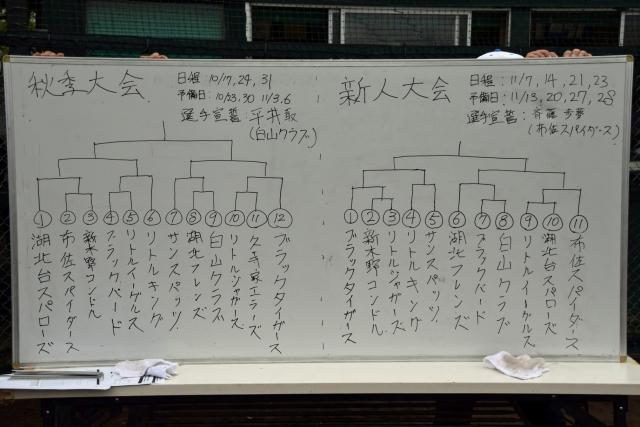 秋季大会
日程: 10/17, 24, 31
予備日: 10/23. 30 11/3. 6
選手宣誓: 平井
(白山クラブ)
① 湖北台スパローズ
② 布佐スパイダース
③ 新木野コンドル
④ ブラックバード
⑤ リトルイーグルス
⑥ リトルキング
⑦ サンスパッツ
⑧ 湖北フレンズ
⑨ 白山クラブ
⑩ リトルジャガーズ
⑪ 久寺家エラーズ
⑫ ブラックタイガース
新人大会
日程: 11/7, 14, 21, 23
予備日: 11/13, 20, 27, 28
選手宣誓: 斉藤 歩夢
(布佐スパイダース)
① ブラックタイガース
② 新木野コンドル
③ リトルジャガーズ
④ リトルキング
⑤ サンスパッツ
⑥ 湖北フレンズ
⑦ ブラックバード
⑧ 白山クラブ
⑨ リトルイーグルス
⑩ 湖北台スパローズ
⑪ 布佐スパイダース